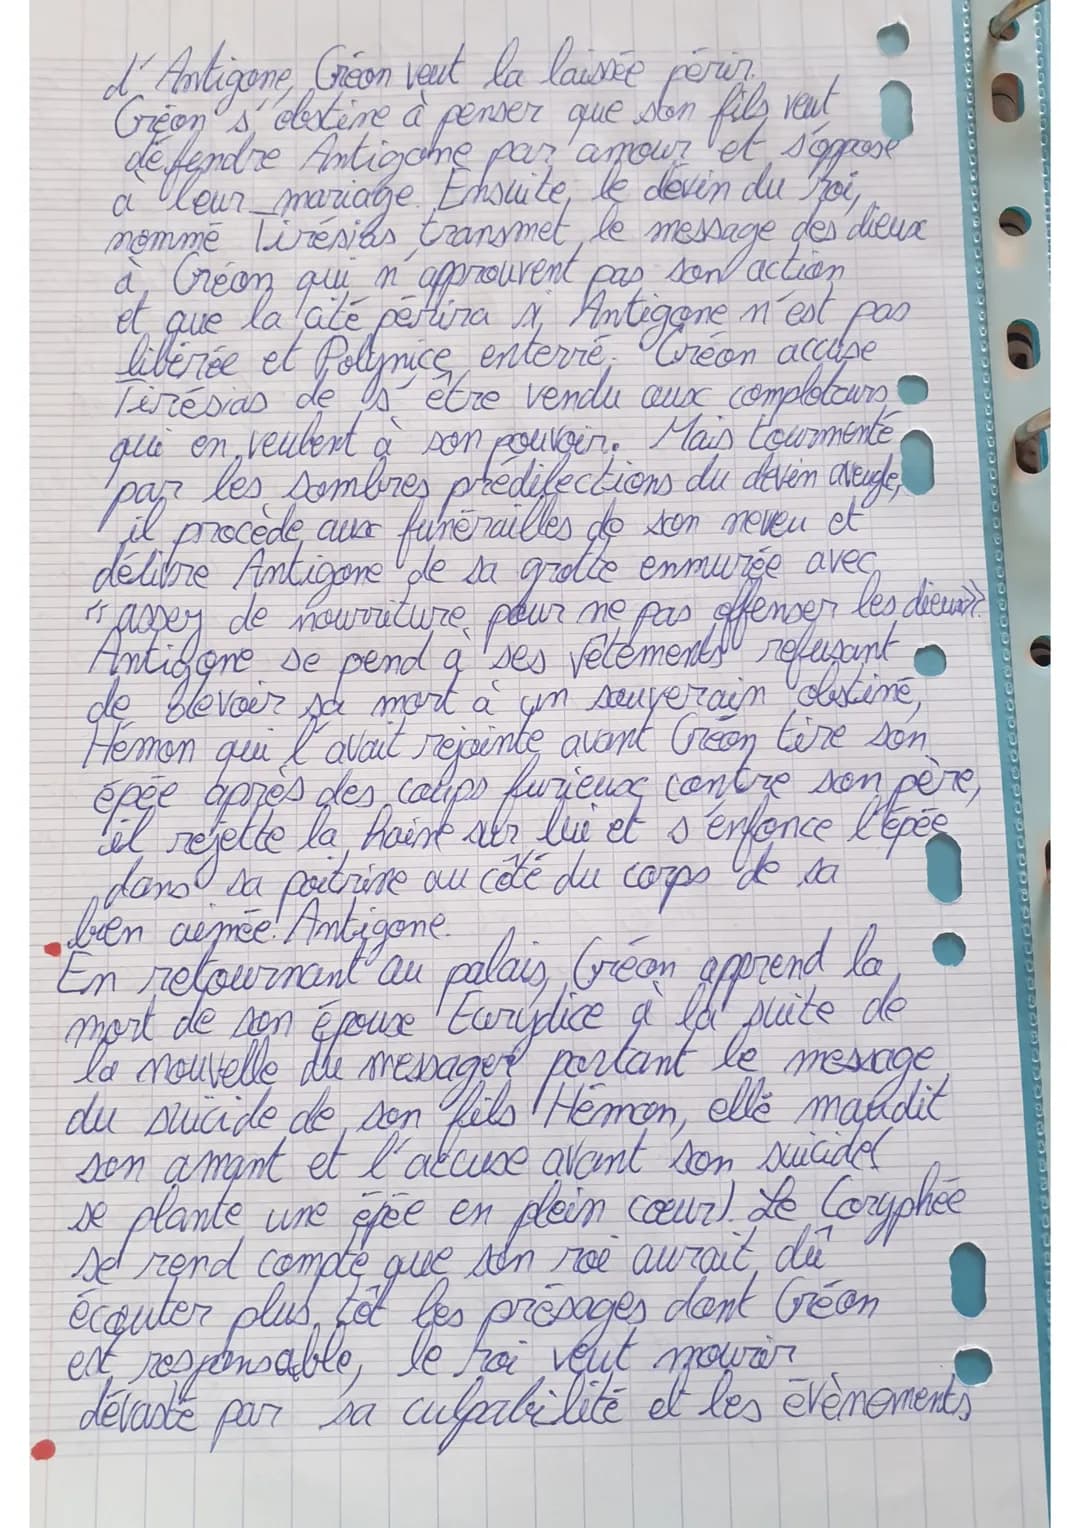 d'Antigone, Créon veut la laissée périr.
Créon s'obstine à penser que son fils veut
défendre Antigone par amour et s'oppose
à leur mariage. Ensuite, le devin du roi,
nommé Tirésias transmet le message des dieux
à Créon qui n'approuvent pas son action
et que la cité périra si Antigone n'est pas
libérée et Polynice enterré. Créon accuse
Tirésias de s'être vendu aux comploteurs
qui en veulent à son pouvoir. Mais tourmenté
par les sombres prédilections du devin aveugle,
il procède aux funérailles de son neveu et
délivre Antigone de sa grotte enmurée avec
"assez de nourriture pour ne pas offenser les dieux».
Antigone se pend à ses vêtements refusant
de devoir sa mort à un souverain obstiné,
Hémon qui l'avait rejointe avant Créon tire son
épée après des coups furieux contre son père,
il rejette la haine sur lui et s'enfonce l'épée
dans sa poitrine au côté du corps de sa
bien aimée Antigone.
En retournant au palais, Créon apprend la
mort de son épouse Eurydice à la suite de
la nouvelle du messager portant le message
du suicide de son fils Hémon, elle maudit
son amant et l'accuse avant son suicide(
se plante une épée en plein cœur). Le Coryphée
se rend compte que son roi aurait dû
écouter plus tôt les présages dont Créon
est responsable, le roi veut mourir
dévasté par sa culpabilité et les évènements